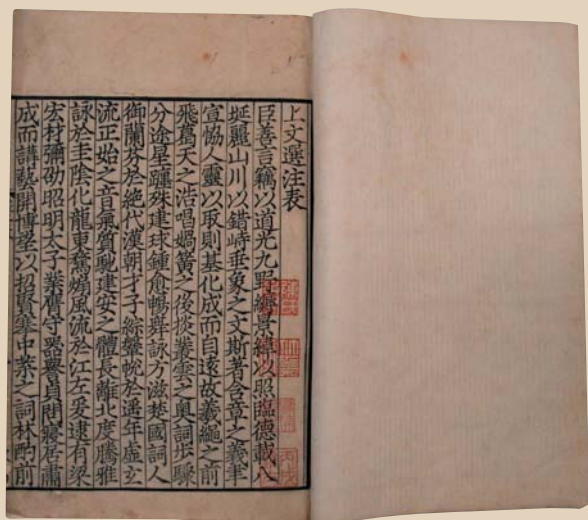 上文選注表
臣善言竊以道光九野縟景緯以照臨德載八
埏麗山川以錯峙垂象之文斯著含章之義聿
宣恊人靈以取則基化成而自遠故羲繩之前
飛葛天之浩唱媧簧之後掞叢雲之奧詞步驟
分途星躔殊建球鍾愈暢舞詠方滋楚國詞人
御蘭芬於絕代漢朝才子綜鞶帨於遙年虛玄
流正始之音氣質馳建安之體長離北度騰雅
詠於圭陰化龍東騖煽風流於江左爰逮有梁
宏材彌劭昭明太子業膺守器譽貞問寢居肅
成而講藝開博望以招賢搴中葉之詞林酌前